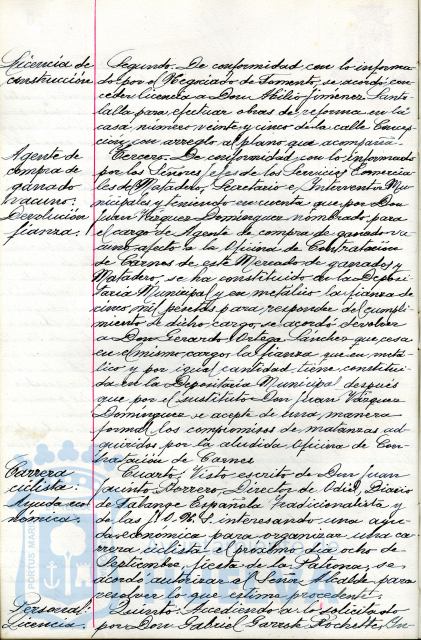 Licencia de construcción
Segundo. De conformidad con lo informa-
do por el Negociado de Fomento, se acordó con-
ceder licencia a Don Abilio Jimenez Santo-
lalla para efectuar obras de reforma en la
casa número veinte y cinco de la calle Concep-
ción, con arreglo al plano que acompaña.
Agente de
compra de
ganado
vacuno:
Devolución
fianza:
Tercero. De conformidad con lo informado
por los Señores Jefes de los Servicios Comercia-
les de Matadero, Secretario e Interventor Mu-
nicipales y teniendo en cuenta que por Don
Juan Vázquez Dominguez nombrado para
el cargo de Agente de compra de ganado va-
cuno afecto a la Oficina de Contratación
de Carnes de este Mercado de ganados y
Matadero, se ha constituido en la Deposi-
taria Municipal y en metálico la fianza de
cinco mil pesetas para responder del cumpli-
miento de dicho cargo, se acordó devolver
a Don Gerardo Ortega Sanchez que cesa
en el mismo cargo, la fianza que en metá-
lico y por igual cantidad tiene constitui-
da en la Depositaria Municipal después
que por el sustituto Don Juan Vázquez
Dominguez se acepte de una manera
formal los compromisos de matanzas ad-
quiridos por la aludida Oficina de Con-
tratación de Carnes
Carrera
ciclista:
Ayuda eco-
nómica:
Cuarto. Visto escrito de Don Juan
Jacinto Borrero, Director de Odiel, Diario
de Falange Española Tradicionalista y
de las J.O.N.S. interesando una ayu-
da económica para organizar una ca-
rrera ciclista el próximo dia ocho de
Septiembre, fiesta de la Patrona, se
acordó autorizar al Señor Alcalde para
resolver lo que estime procedente.
Personal:
Licencia:
Quinto. Accediendo a lo solicitado
por Don Gabriel Garrste Rochette,
PORTUS MARIS